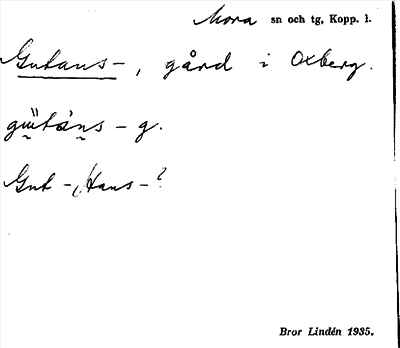 Mora sn och tg, Kopp. l.
Gutans-, gård i Oxberg.
- g.
Gut-, Hans-?
Bror Lindén 1935.